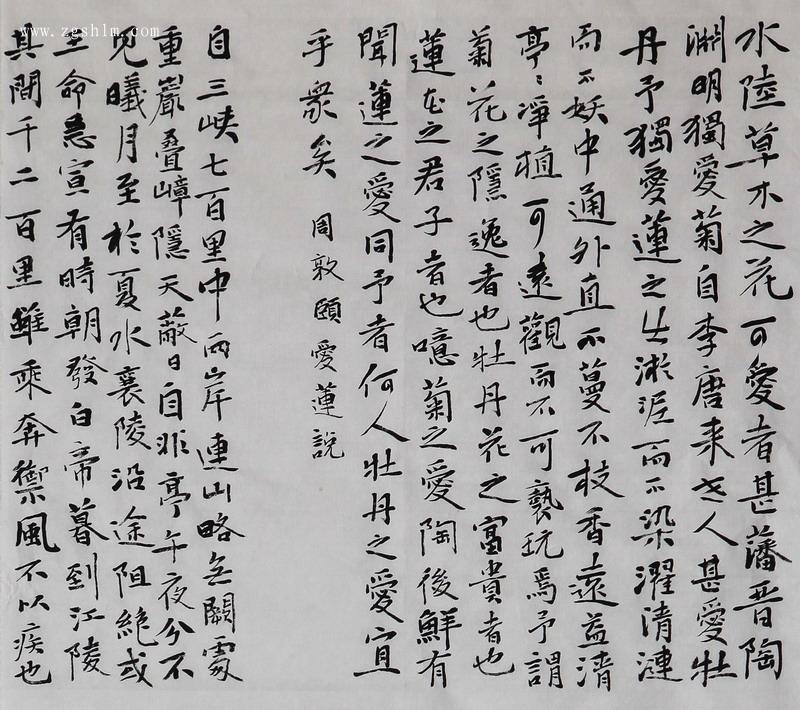 www.zgshlm.com
水陸草木之花可愛者甚藩晋陶
渊明獨愛菊自李唐来世人甚愛牡
丹予獨愛蓮之出淤泥而不染濯清漣
而不妖中通外直不蔓不枝香遠益清
亭〻凈植可遠觀而不可褻玩焉予謂
菊花之隱逸者也牡丹花之富貴者也
蓮花之君子者也噫菊之愛陶後鮮有
聞蓮之愛同予者何人牡丹之愛宜
乎衆矣 周敦頤愛蓮說
自三峡七百里中两岸連山略無闕處
重巖叠嶂隱天蔽日自非亭午夜分不
見曦月至於夏水襄陵沿途阻絶或
王命急宣有時朝發白帝暮到江陵
其間千二百里雖乘奔禦風不以疾也